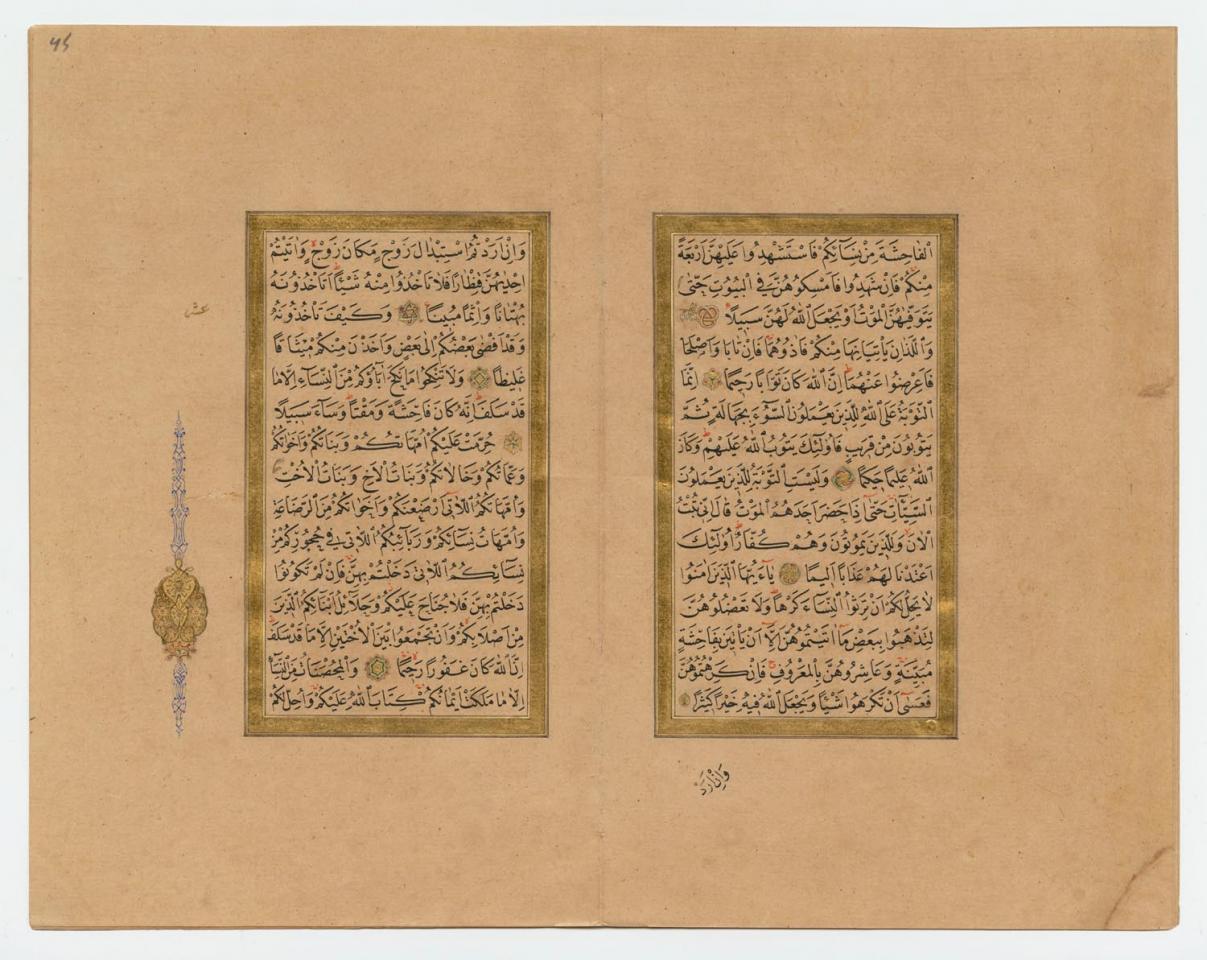 الْفَاحِشَةَ مِنْ نِسَآئِكُمْ فَاسْتَشْهِدُوا عَلَيْهِنَّ اَرْبَعَةً
مِنْكُمْ فَاِنْ شَهِدُوا فَاَمْسِكُوهُنَّ فِى الْبُيُوتِ حَتّٰى
يَتَوَفّٰيهُنَّ الْمَوْتُ اَوْ يَجْعَلَ اللّٰهُ لَهُنَّ سَبِيلًا
وَالَّذَانِ يَاْتِيَانِهَا مِنْكُمْ فَاٰذُوهُمَا فَاِنْ تَابَا وَاَصْلَحَا
فَاَعْرِضُوا عَنْهُمَا اِنَّ اللّٰهَ كَانَ تَوَّابًا رَحِيمًا اِنَّمَا
التَّوْبَةُ عَلَى اللّٰهِ لِلَّذِينَ يَعْمَلُونَ السُّوٓءَ بِجَهَالَةٍ ثُمَّ
يَتُوبُونَ مِنْ قَرِيبٍ فَاُولٰٓئِكَ يَتُوبُ اللّٰهُ عَلَيْهِمْ وَكَانَ
اللّٰهُ عَلِيمًا حَكِيمًا وَلَيْسَتِ التَّوْبَةُ لِلَّذِينَ يَعْمَلُونَ
السَّيِّئَاتِ حَتّٰٓى اِذَا حَضَرَ اَحَدَهُمُ الْمَوْتُ قَالَ اِنِّى تُبْتُ
الْاٰنَ وَلَا الَّذِينَ يَمُوتُونَ وَهُمْ كُفَّارٌ اُولٰٓئِكَ
اَعْتَدْنَا لَهُمْ عَذَابًا اَلِيمًا يَٓا اَيُّهَا الَّذِينَ اٰمَنُوا
لَا يَحِلُّ لَكُمْ اَنْ تَرِثُوا النِّسَآءَ كَرْهًا وَلَا تَعْضُلُوهُنَّ
لِتَذْهَبُوا بِبَعْضِ مَٓا اٰتَيْتُمُوهُنَّ اِلَّٓا اَنْ يَاْتِينَ بِفَاحِشَةٍ
مُبَيِّنَةٍ وَعَاشِرُوهُنَّ بِالْمَعْرُوفِ فَاِنْ كَرِهْتُمُوهُنَّ
فَعَسٰٓى اَنْ تَكْرَهُوا شَيْئًا وَيَجْعَلَ اللّٰهُ فِيهِ خَيْرًا كَثِيرًا
وَاِنْ اَرَدْ
وَاِنْ اَرَدْتُمُ اسْتِبْدَالَ زَوْجٍ مَكَانَ زَوْجٍ وَاٰتَيْتُمْ
اِحْدٰيهُنَّ قِنْطَارًا فَلَا تَاْخُذُوا مِنْهُ شَيْئًا اَتَاْخُذُونَهُ
بُهْتَانًا وَاِثْمًا مُبِينًا وَكَيْفَ تَاْخُذُونَهُ
وَقَدْ اَفْضٰى بَعْضُكُمْ اِلٰى بَعْضٍ وَاَخَذْنَ مِنْكُمْ مِيثَاقًا
غَلِيظًا وَلَا تَنْكِحُوا مَا نَكَحَ اٰبَٓاؤُكُمْ مِنَ النِّسَآءِ اِلَّا مَا
قَدْ سَلَفَ اِنَّهُ كَانَ فَاحِشَةً وَمَقْتًا وَسَٓاءَ سَبِيلًا
حُرِّمَتْ عَلَيْكُمْ اُمَّهَاتُكُمْ وَبَنَاتُكُمْ وَاَخَوَاتُكُمْ
وَعَمَّاتُكُمْ وَخَالَاتُكُمْ وَبَنَاتُ الْاَخِ وَبَنَاتُ الْاُخْتِ
وَاُمَّهَاتُكُمُ اللَّاتِٓى اَرْضَعْنَكُمْ وَاَخَوَاتُكُمْ مِنَ الرَّضَاعَةِ
وَاُمَّهَاتُ نِسَآئِكُمْ وَرَبَآئِبُكُمُ اللَّاتِى فِى حُجُورِكُمْ مِنْ
نِسَآئِكُمُ اللَّاتِى دَخَلْتُمْ بِهِنَّ فَاِنْ لَمْ تَكُونُوا
دَخَلْتُمْ بِهِنَّ فَلَا جُنَاحَ عَلَيْكُمْ وَحَلَآئِلُ اَبْنَآئِكُمُ الَّذِينَ
مِنْ اَصْلَابِكُمْ وَاَنْ تَجْمَعُوا بَيْنَ الْاُخْتَيْنِ اِلَّا مَا قَدْ سَلَفَ
اِنَّ اللّٰهَ كَانَ غَفُورًا رَحِيمًا وَالْمُحْصَنَاتُ مِنَ النِّسَآءِ
اِلَّا مَا مَلَكَتْ اَيْمَانُكُمْ كِتَابَ اللّٰهِ عَلَيْكُمْ وَاُحِلَّ لَكُمْ
عشر